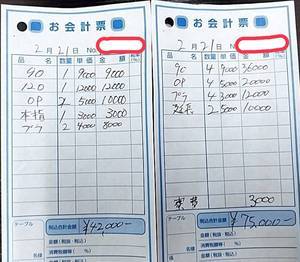 お会計票
2月21日 No.
品名 数量 単価 金額
90 1 9000 9000
120 1 12000 12000
OP 2 5000 10000
本指 1 3000 3000
プラ 2 4000 8000
テーブル 税込合計金額 ¥42,000-
金額(税抜・税込)
消費税額等
金額(税抜・税込)
消費税額等
お会計票
2月21日 No.
品名 数量 単価 金額
90 4 9000 36000
OP 4 5000 20000
プラ 4 3000 12000
延長 2 5000 10000
3000
テーブル 税込合計金額 ¥75,000-
金額(税抜・税込)
消費税額等
金額(税抜・税込)
消費税額等